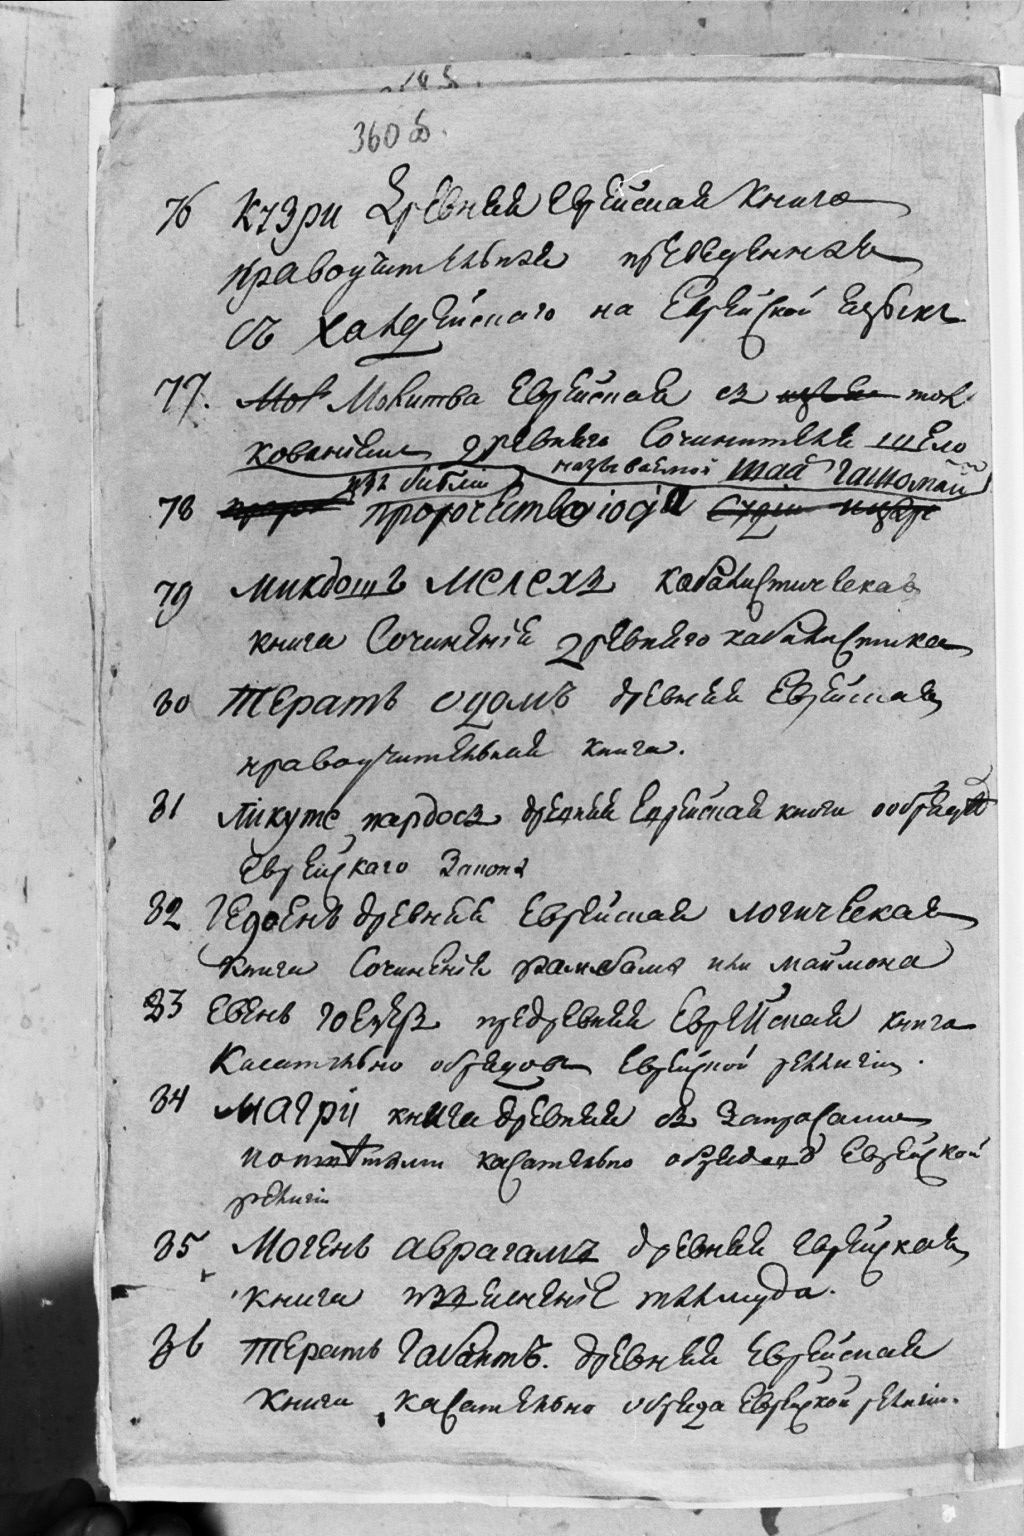 360 об.
76 Кузри Древняя Еврейская книга
нравоучительная преведенная
съ Халдейскаго на Еврейской языкъ
77. Мол Молитва Еврейская съ тол
кованіемъ древняго Сочинителя шело
называемой шай гашомай
изъ библіи
78 пророчество іосіи
79 микдошъ мелехъ кабалистическая
книга Сочиненія древняго кабалистика
80 тератъ одомъ древняя Еврейская
нравоучительная книга.
81 ликуте пардосъ древняя Еврейская книга о обряде
Еврейскаго Закона
82 древняя Еврейская логическая
книга Сочиненія рамбама или маймона
83 Евень гоезеръ предревняя Еврейская книга
Касательно обрядовъ Еврейской религіи.
84 Магри книга древняя съ Запросами
касательно обрядовъ Еврейской
религіи
85 Могень аврагамъ древняя Еврейская
книга изъясненіе талмуда.
86 тератъ габаитъ. древняя Еврейская
книга касательно обряда Еврейской религіи.